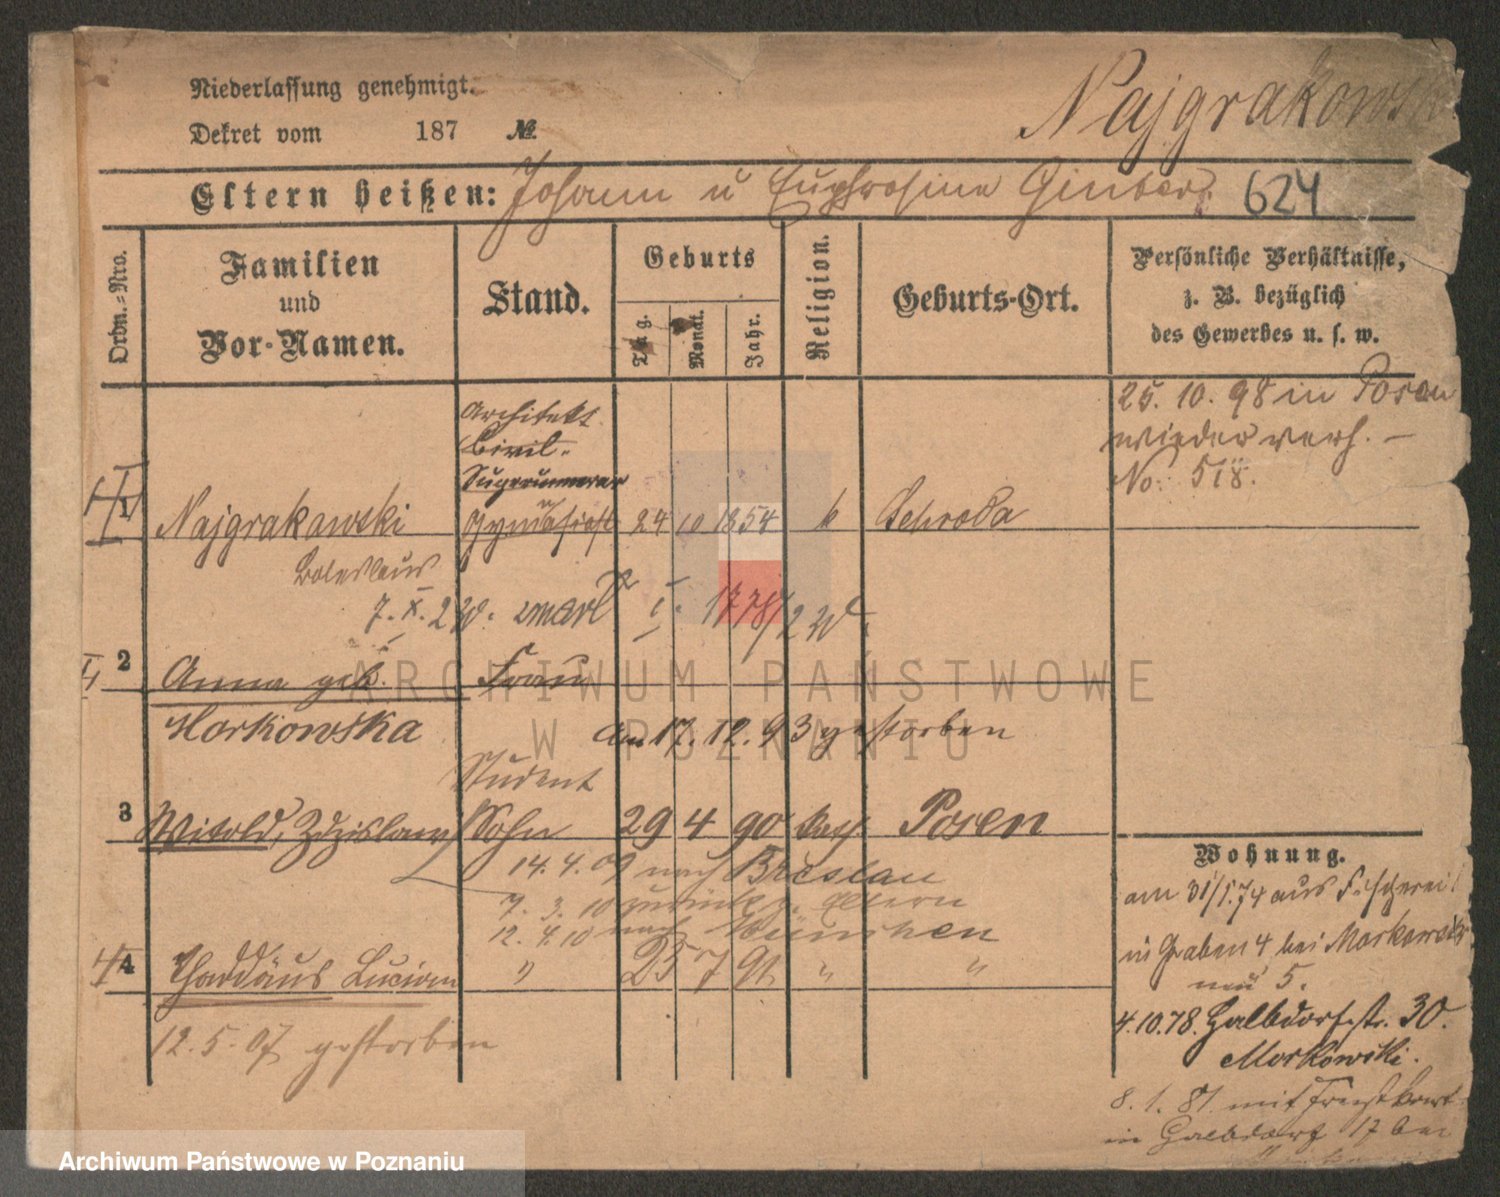 Niederlassung genehmigt.
Dekret vom 187 №
Najgrakowsk
Eltern heißen: Johann u Euphrosine Ginter 624
Ordn.=Nro.
Familien
und
Vor-Namen.
Stand.
Geburts
Tag.
Monat.
Jahr.
Religion.
Geburts-Ort.
Persönliche Verhältnisse,
z. B. bezüglich
des Gewerbes u. s. w.
25. 10. 98 in Posen
wieder verh. –
No: 518.
Architekt
Civil-
Supernumerar
1 Najgrakowski 24 10 1854 k Schroda
Boleslaus
7. X. 2 W. zmarł
2 Anna geb. Frau
Morkowska am 17. 12. 93 gestorben
Student
3 Witold, Zdzislaw Sohn 29 4 90 kath. Posen
14. 4. 09 nach Breslau
7. 3. 10 zurück z. Eltern
12. 4. 10 nach München
4 Thaddäus Lucian " 23 7 91 " "
12. 5. 07 gestorben
Wohnung.
am 31/1.74 aus Fischerei
in Graben 4 bei Morkowski
neu 5.
4.10.78. Halbdorfstr. 30.
Morkowski.
8. 1. 81. mit
in Halbdorf 17 bei
ARCHIWUM PAŃSTWOWE
W POZNANIU
Archiwum Państwowe w Poznaniu